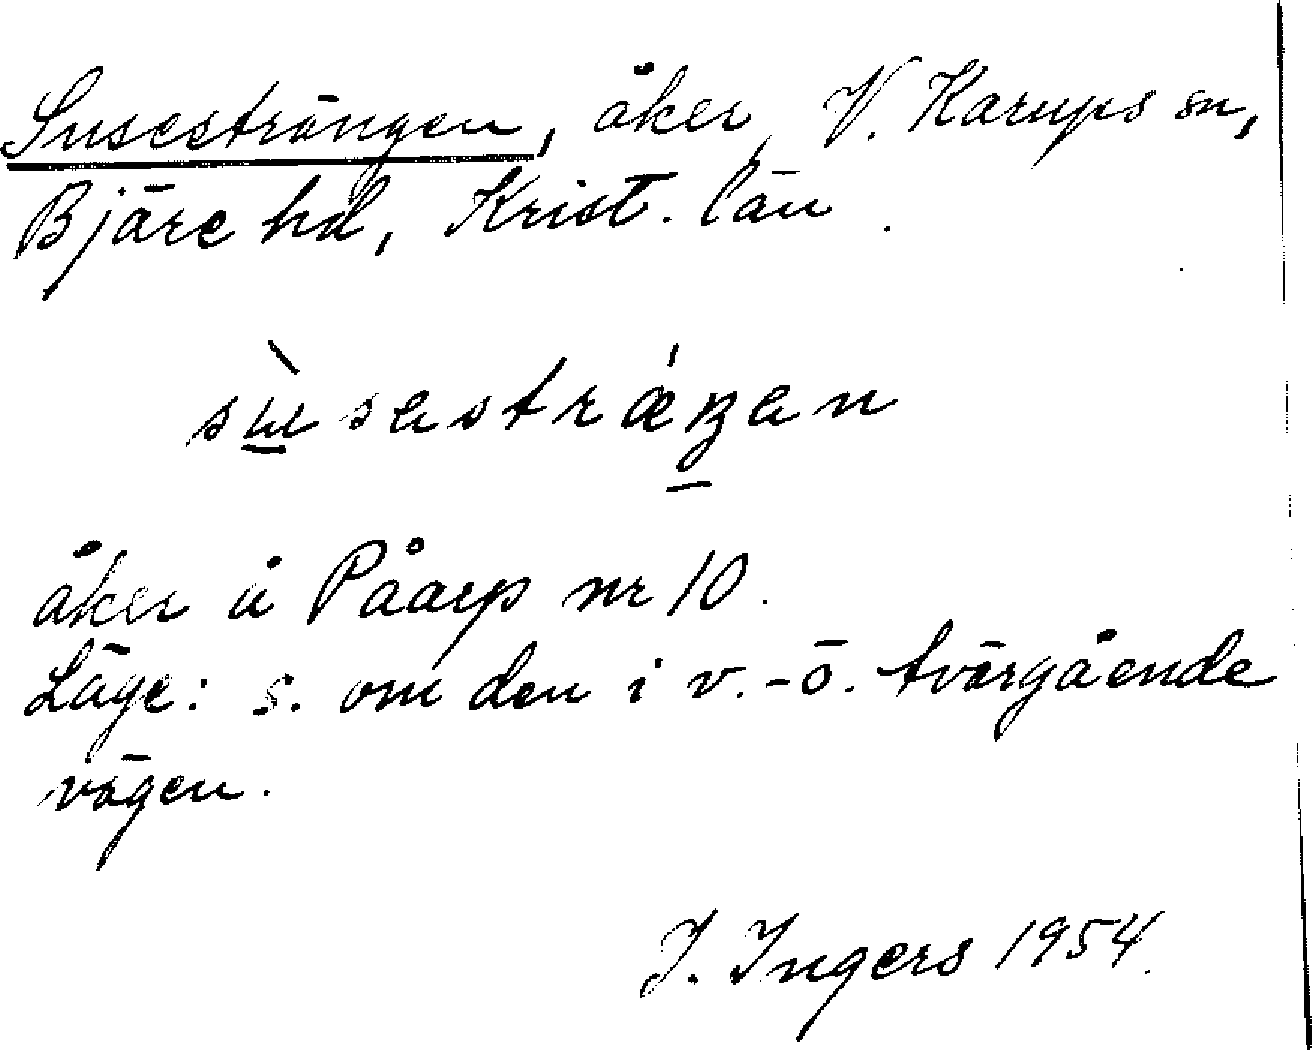 Susesträngen, åker, V. Karups sn,
Bjäre hd, Krist. län.
sùsesträŋen
åker å Påarp nr 10.
Läge: s. om den i v.-ö. tvärgående
vägen.
I. Ingers 1954.